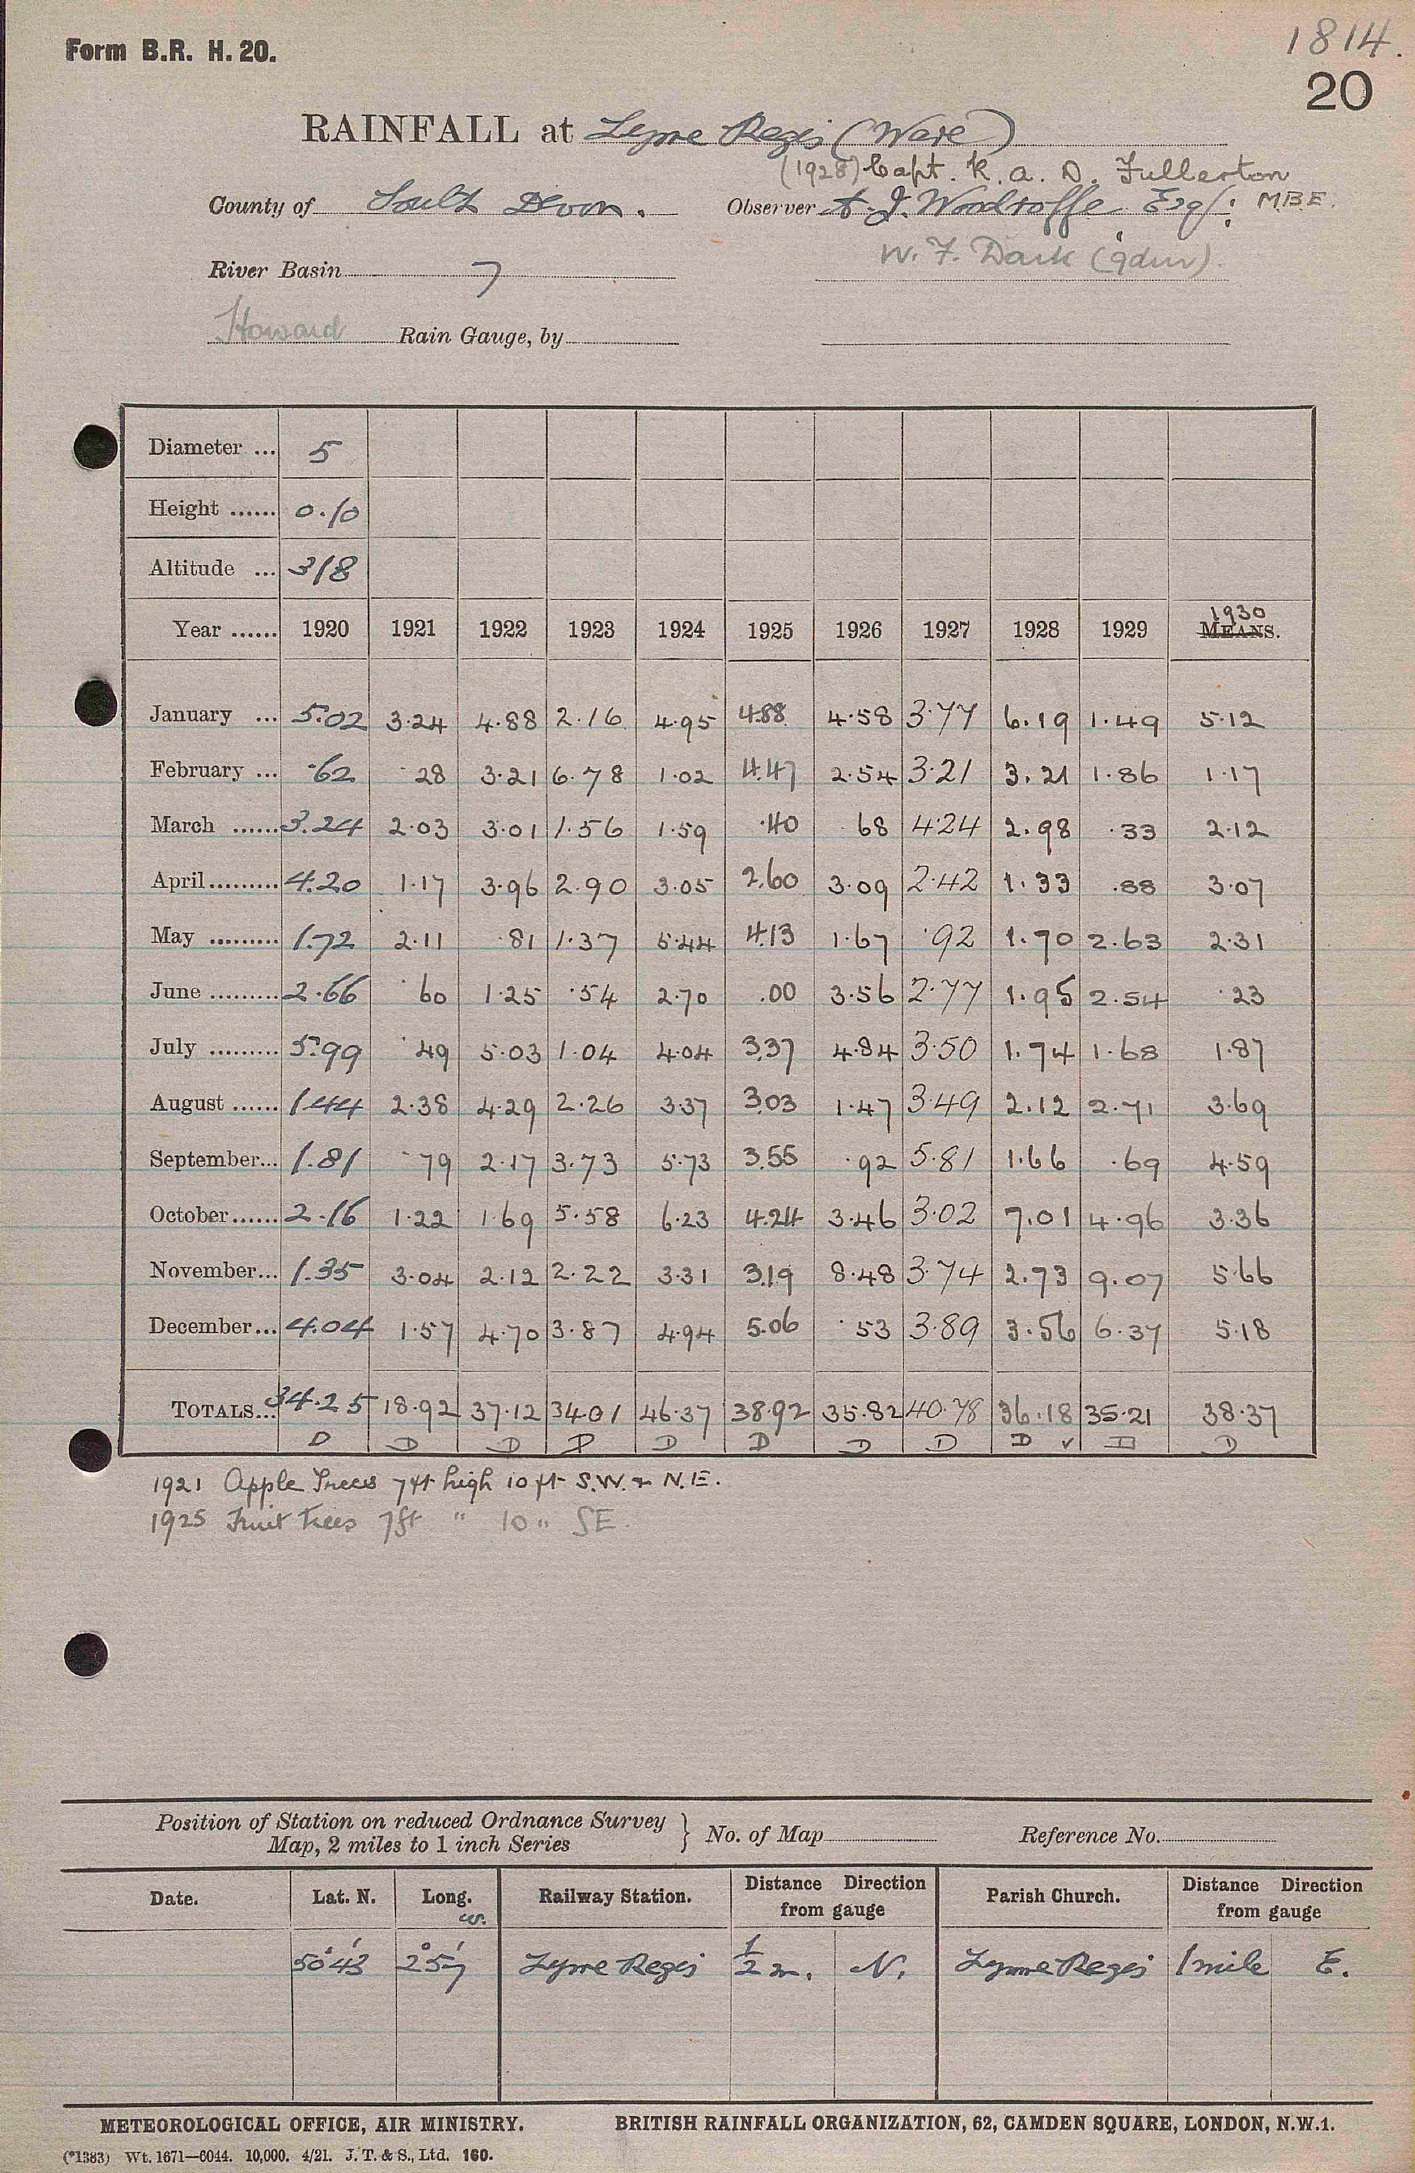 Form B.R. H. 20.
1814.
20
RAINFALL at Lyme Regis (Ware)
(1928) Capt. R. A. D. Fullerton
County of South Devon. Observer A. J. Woodroffe Esq: MBE.
W. F. Dark (gdnr).
River Basin 7
Howard Rain Gauge, by
Diameter ... 5
Height ...... 0.10
Altitude ... 318
Year ...... 1920 1921 1922 1923 1924 1925 1926 1927 1928 1929 1930 MEANS.
January ... 5.02 3.24 4.88 2.16 4.95 4.88 4.58 3.77 6.19 1.49 5.12
February ... .62 .28 3.21 6.78 1.02 4.47 2.54 3.21 3.21 1.86 1.17
March ...... 3.24 2.03 3.01 1.56 1.59 .40 .68 4.24 2.98 .33 2.12
April ......... 4.20 1.17 3.96 2.90 3.05 2.60 3.09 2.42 1.33 .88 3.07
May ......... 1.72 2.11 .81 1.37 5.44 4.13 1.67 .92 1.70 2.63 2.31
June ......... 2.66 .60 1.25 .54 2.70 .00 3.56 2.77 1.95 2.54 .23
July ......... 5.99 .49 5.03 1.04 4.04 3.37 4.84 3.50 1.74 1.68 1.87
August ...... 1.44 2.38 4.29 2.26 3.37 3.03 1.47 3.49 2.12 2.71 3.69
September... 1.81 .79 2.17 3.73 5.73 3.55 .92 5.81 1.66 .69 4.59
October...... 2.16 1.22 1.69 5.58 6.23 4.24 3.46 3.02 7.01 4.96 3.36
November... 1.35 3.04 2.12 2.22 3.31 3.19 8.48 3.74 2.73 9.07 5.66
December... 4.04 1.57 4.70 3.87 4.94 5.06 .53 3.89 3.56 6.37 5.18
TOTALS... 34.25 18.92 37.12 34.01 46.37 38.92 35.82 40.78 36.18 35.21 38.37
D D D D D D D D D v D D
1921 Apple Trees 7ft high 10 ft S.W. & N.E.
1925 Fruit Trees 7ft " 10 " SE.
Position of Station on reduced Ordnance Survey
Map, 2 miles to 1 inch Series } No. of Map Reference No.
Date. Lat. N. Long. W. Railway Station. Distance Direction from gauge Parish Church. Distance Direction from gauge
50°43' 2°57' Lyme Regis 1/2 m. N. Lyme Regis 1 mile E.
METEOROLOGICAL OFFICE, AIR MINISTRY. BRITISH RAINFALL ORGANIZATION, 62, CAMDEN SQUARE, LONDON, N.W.1.
(*1383) Wt. 1671—6044. 10,000. 4/21. J. T. & S., Ltd. 160.